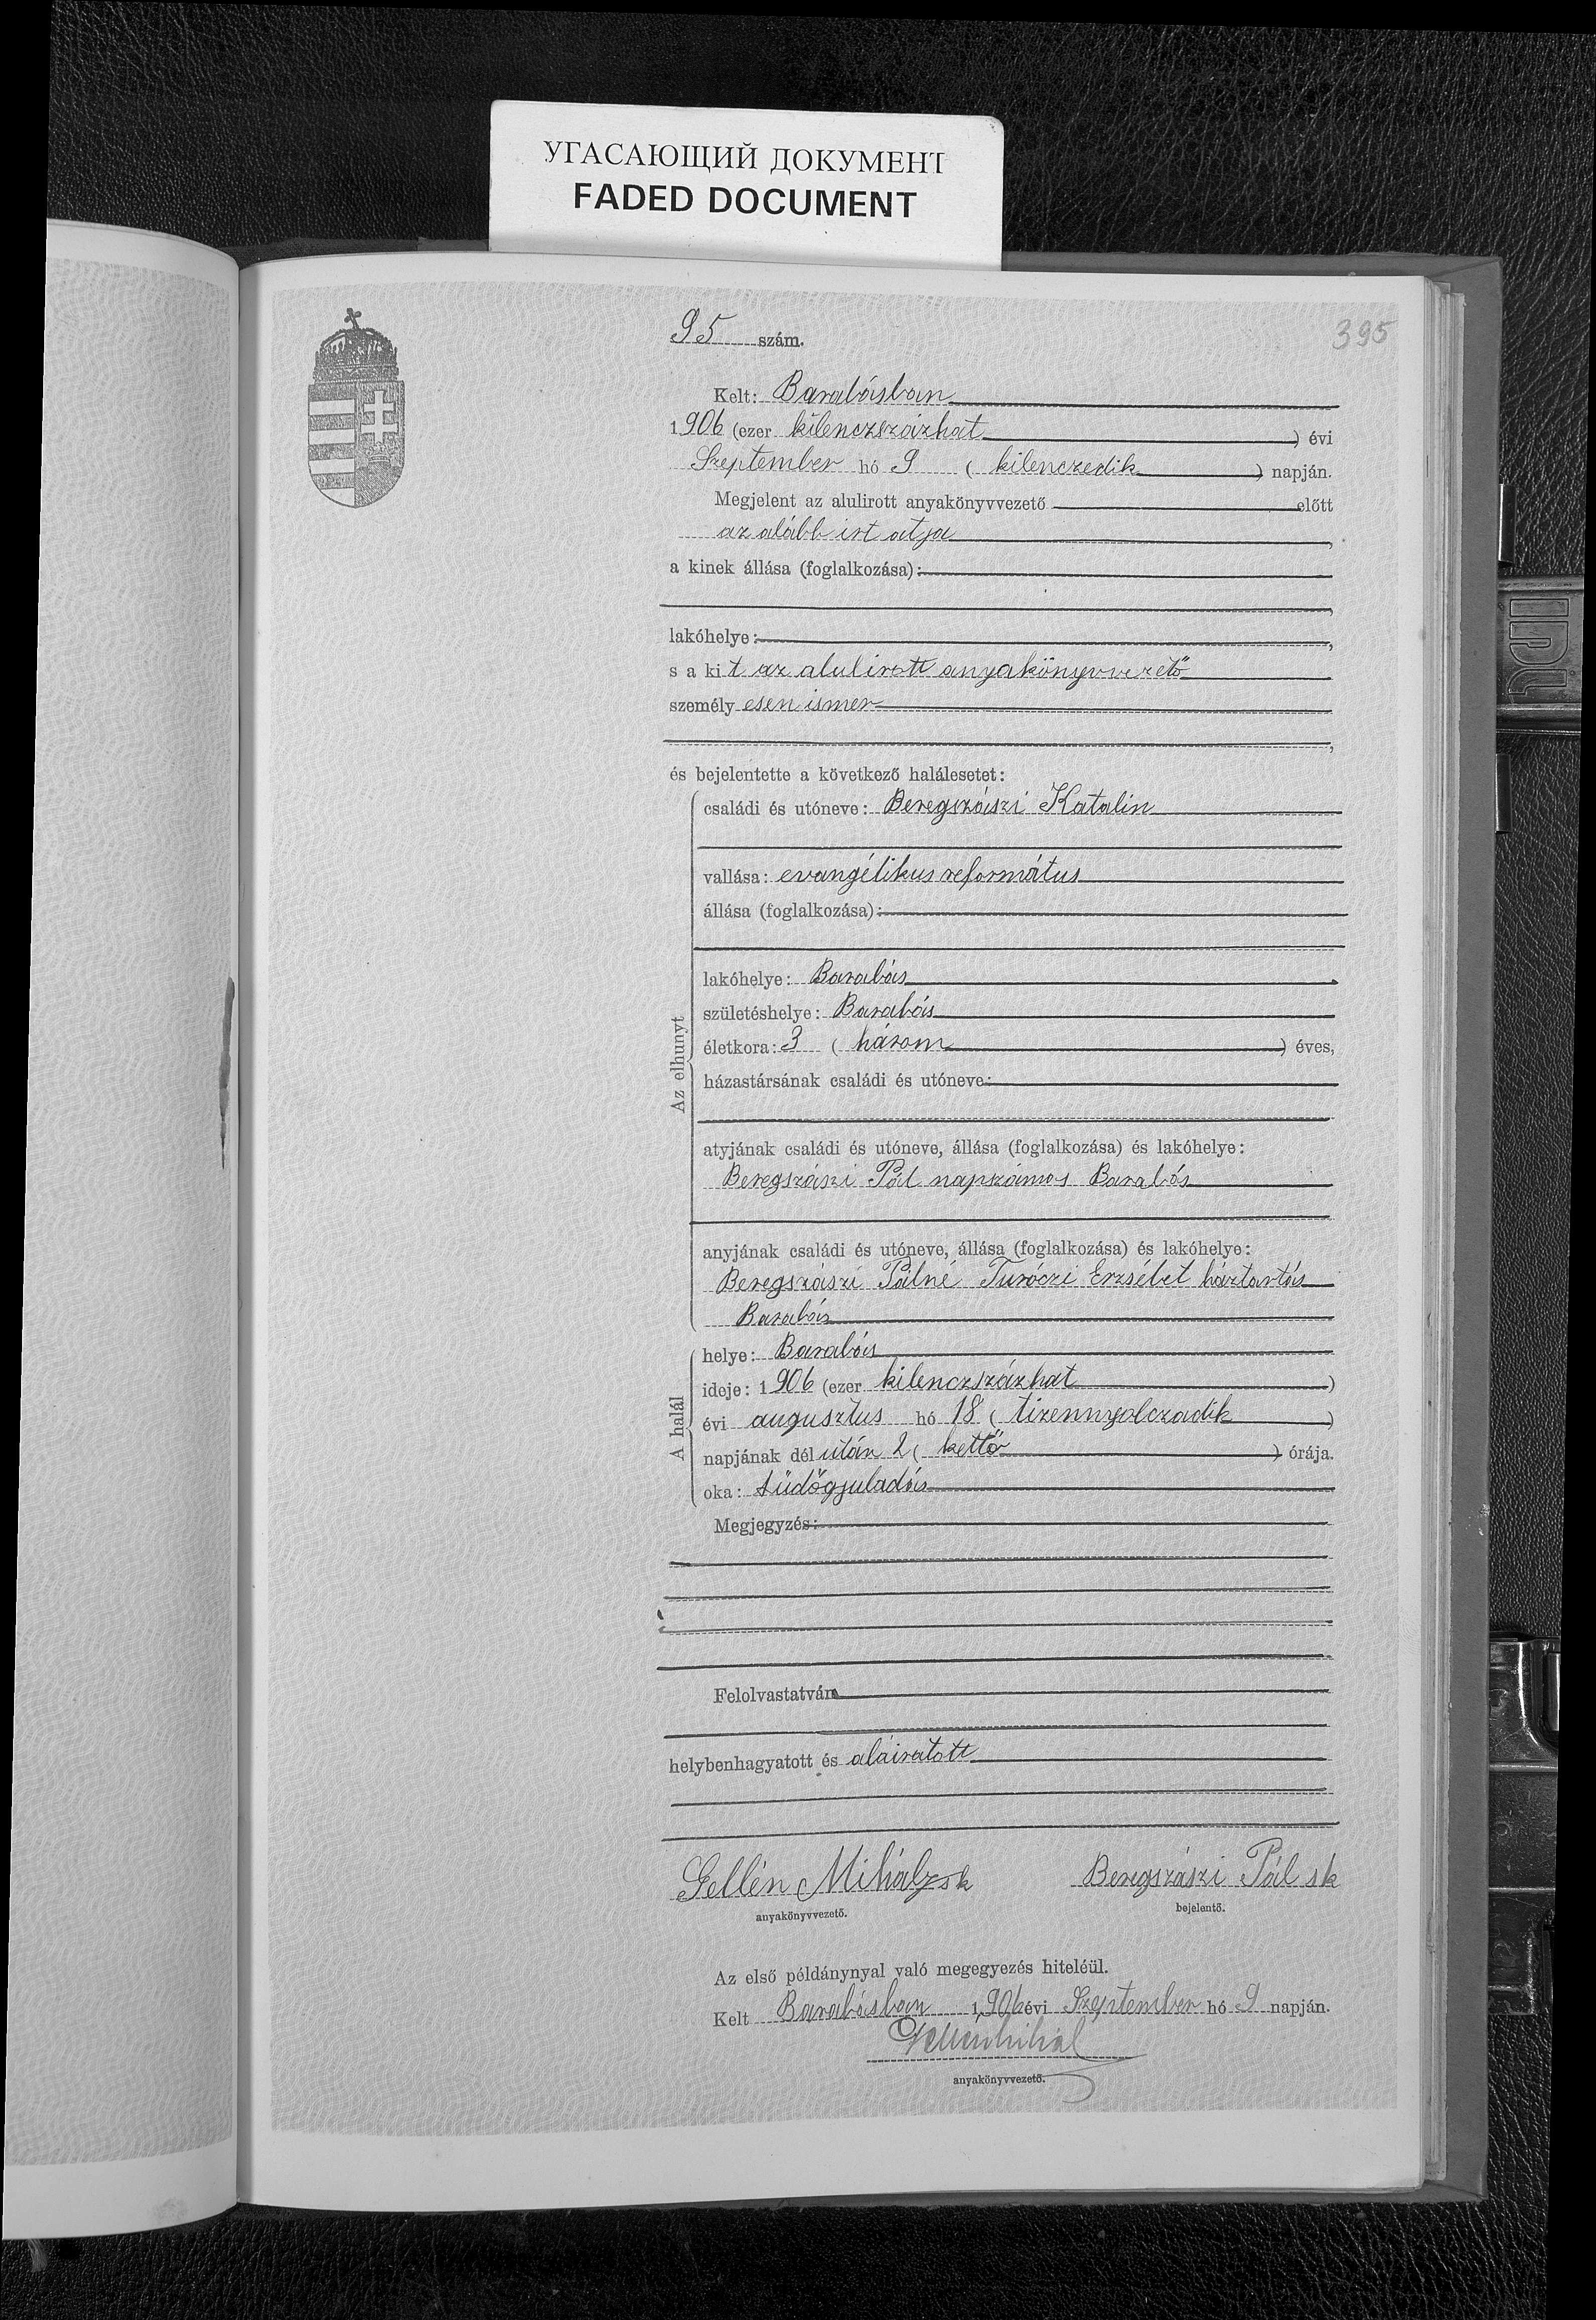 УГАСАЮЩИЙ ДОКУМЕНТ
FADED DOCUMENT
95 szám.
395
Kelt: Barabásban
1906 (ezer kilenczszázhat) évi
Szeptember hó 9 (kilenczedik) napján.
Megjelent az alulirott anyakönyvvezető előtt
az alább irt atja,
a kinek állása (foglalkozása):
lakóhelye:
s a kit az alulirott anyakönyvvezető
személyesen ismer
és bejelentette a következő halálesetet:
Az elhunyt
családi és utóneve: Beregszászi Katalin
vallása: evangélikus református
állása (foglalkozása):
lakóhelye: Barabás
születéshelye: Barabás
életkora: 3 (három) éves,
házastársának családi és utóneve:
atyjának családi és utóneve, állása (foglalkozása) és lakóhelye:
Beregszászi Pál napszámos Barabás
anyjának családi és utóneve, állása (foglalkozása) és lakóhelye:
Beregszászi Pálné Turóczi Erzsébet háztartás
Barabás
A halál
helye: Barabás
ideje: 1906 (ezer kilenczszázhat)
évi augusztus hó 18 (tizennyolczadik)
napjának délután 2 (kettő) órája.
oka: tüdőgyuladás
Megjegyzés:
Felolvastatván
helybenhagyatott és aláiratott
Gellén Mihály sk
Beregszászi Pál sk
anyakönyvvezető.
bejelentő.
Az első példánynyal való megegyezés hiteléül.
Kelt Barabásban 1906 évi Szeptember hó 9 napján.
anyakönyvvezető.